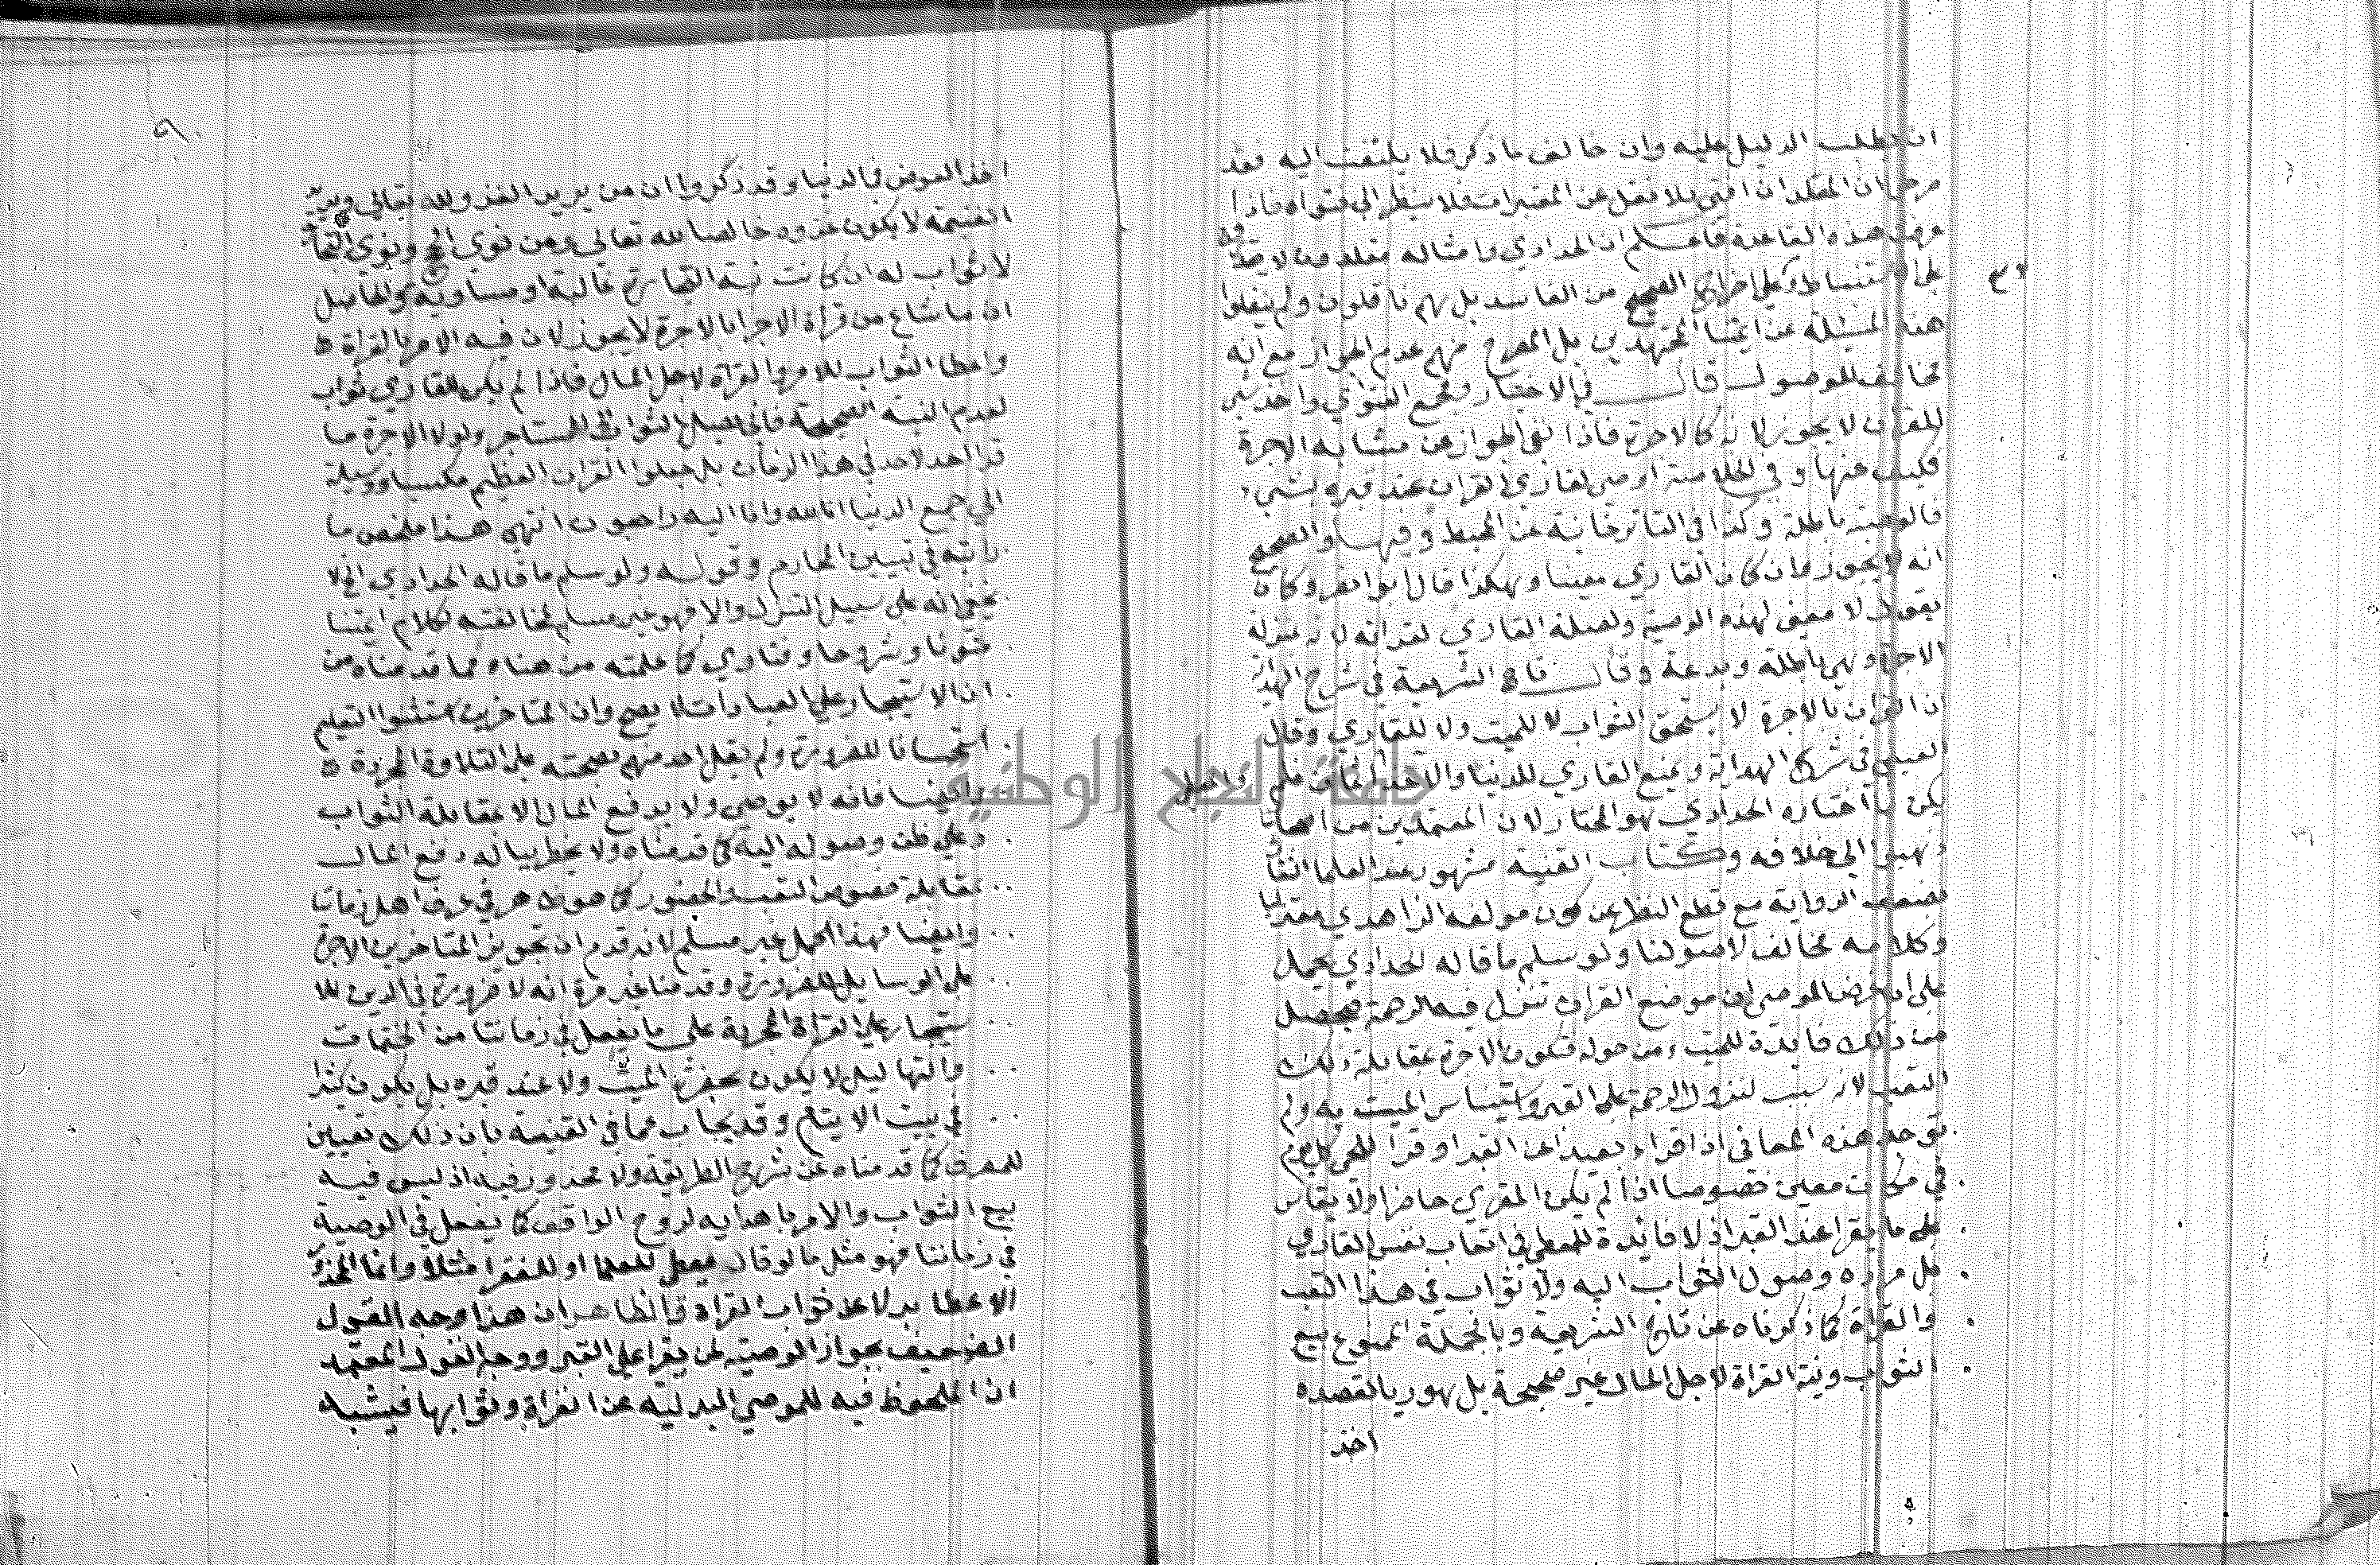 ان يطلب الدليل عليه وان خالف ما ذكر فلا يلتفت اليه فقد
صرحوا ان المقلد ان افتى بلا نقل عن المعتبرات فلا ينظر الى فتواه فاذا
عرفت هذه القاعدة فاعلم ان الحدادي وامثاله مقلدون لا يقدرون
على الاستنباط وعلى اخراج الصحيح من الفاسد بل هم ناقلون ولم ينقلوا
هذه المسئلة عن ايمتنا المجتهدين بل المصرح منهم عدم الجواز مع انه
مخالف للوصول قال في الاختيار ومجمع الفتوى واخذ شي
للقران لا يجوز لانه كالاجرة فاذا نفى الجواز عن مشابه الاجرة
فكيف عنها وفي الخلاصة اوصى لقاري القران عند قبره بشيء
فالوصية باطلة وكذا في التاترخانية عن المحيط وفيها والصحيح
انه لا يجوز وان كان القاري معينا وهكذا قال ابو نصر وكان
يقول لا معنى لهذه الوصية ولصلة القاري لقراته لانه بمنزلة
الاجرة وهي باطلة وبدعة وقال تاج الشريعة في شرح الهداية
ان القران بالاجرة لا يستحق الثواب لا للميت ولا للقاري وقال
العيني في شرح الهداية ويمنع القاري للدنيا والاخذ والمعطي اثمان فلم
يكن ما اختاره الحدادي هو المختار لان المعتمدين من اصحابنا
ذهبوا الى خلافه وكتاب القنية مشهور عند العلما الثقات
بضعف الرواية مع قطع النظر عن كون مولفه الزاهدي معتزليا
وكلامه مخالف لاصولنا ولو سلم ما قاله الحدادي يحمل
على ان غرض الموصي ان موضع القران تنزل فيه الرحمة فيحصل
من ذلك فايدة للميت ومن حوله فتكون الاجرة بمقابلة ذلك
التعب لانه سبب لنزول الرحمة على القبر واستيناس الميت به ولم
توجد هذه المعاني اذا قراء بعيدا عن القبر او قرا للحي كل يوم
في مكان معين خصوصا اذا لم يكن المقري حاضرا ولا يقاس
على ما يقرا عند القبر اذ لا فائدة للمعطي في اتعاب نفس القاري
بل مراده وصول الثواب اليه ولا ثواب في هذا التعب
والقراة كما ذكرناه عن تاج الشريعة وبالجملة الممنوع بيع
الثواب ونية القراة لاجل المال غير صحيحة بل هو ريا لقصده
اخذ
٩٠
اخذ العوض في الدنيا وقد ذكروا ان من يريد الغزو لله تعالى ويريد
الغنيمة لا يكون غزوه خالصا لله تعالى ومن نوى الحج ونوى التجارة
لا ثواب له ان كانت نية التجارة غالبة او مساوية والحاصل
ان ما شاع من قراة الاجزا بالاجرة لا يجوز لان فيه الامر بالقراة
واعطا الثواب للامر والقراة لاجل المال فاذا لم يكن للقاري ثواب
لعدم النية الصحيحة فانى يصل الثواب الى المستاجر ولولا الاجرة ما
قرا احد لاحد في هذا الزمان بل جعلوا القران العظيم مكسبا ووسيلة
الى جمع الدنيا انا لله وانا اليه راجعون انتهى هذا ملخص ما
رايته في تبيين المحارم وقوله ولو سلم ما قاله الحدادي الخ لا
يخفى انه على سبيل التنزل والا فهو غير مسلم لمخالفته لكلام ايمتنا
متونا وشروحا وفتاوى كما علمته من هنا ومما قدمناه من
ان الاستيجار على العبادات لا يصح وان المتاخرين استثنوا التعليم
استحسانا للضرورة ولم يقل احد منهم بصحته على التلاوة المجردة
وايضا فانه لا يوصي ولا يدفع المال الا بمقابلة الثواب
وعلى ظن وصوله اليه كما قدمناه ولا يخطر بباله دفع المال
بمقابلة خصوص التعب والحضور كما هو ظاهر في عرف اهل زماننا
وايضا فهذا الحمل غير مسلم لانه قدم ان تجويز المتاخرين الاجرة
على الوسايل للضرورة وقدمنا غير مرة انه لا ضرورة في الدين للا
ستيجار على القراة المجردة على ما يفعل في زماننا من الختمات
والتهاليل لا يكون بحضرة الميت ولا عند قبره بل يكون كثيرا
في بيت الايتام وقد يجاب عما في القنية بان ذلك تعيين
للمصرف كما قدمناه عن شرح الطريقة ولا محذور فيه اذ ليس فيه
بيع الثواب والامر باهدايه لروح الواقف كما يفعل في الوصية
في زماننا فهو مثل ما لو قال يعطى للعلما او للفقرا مثلا وانما المحذور
الاعطا بدلا عن ثواب القراة فالظاهر ان هذا وجه القول
الضعيف بجواز الوصية لمن يقرا على القبر ووجه القول المعتمد
ان الملحوظ فيه للموصي البدلية عن القراة وثوابها فيشبه
جامعة النجاح الوطنية